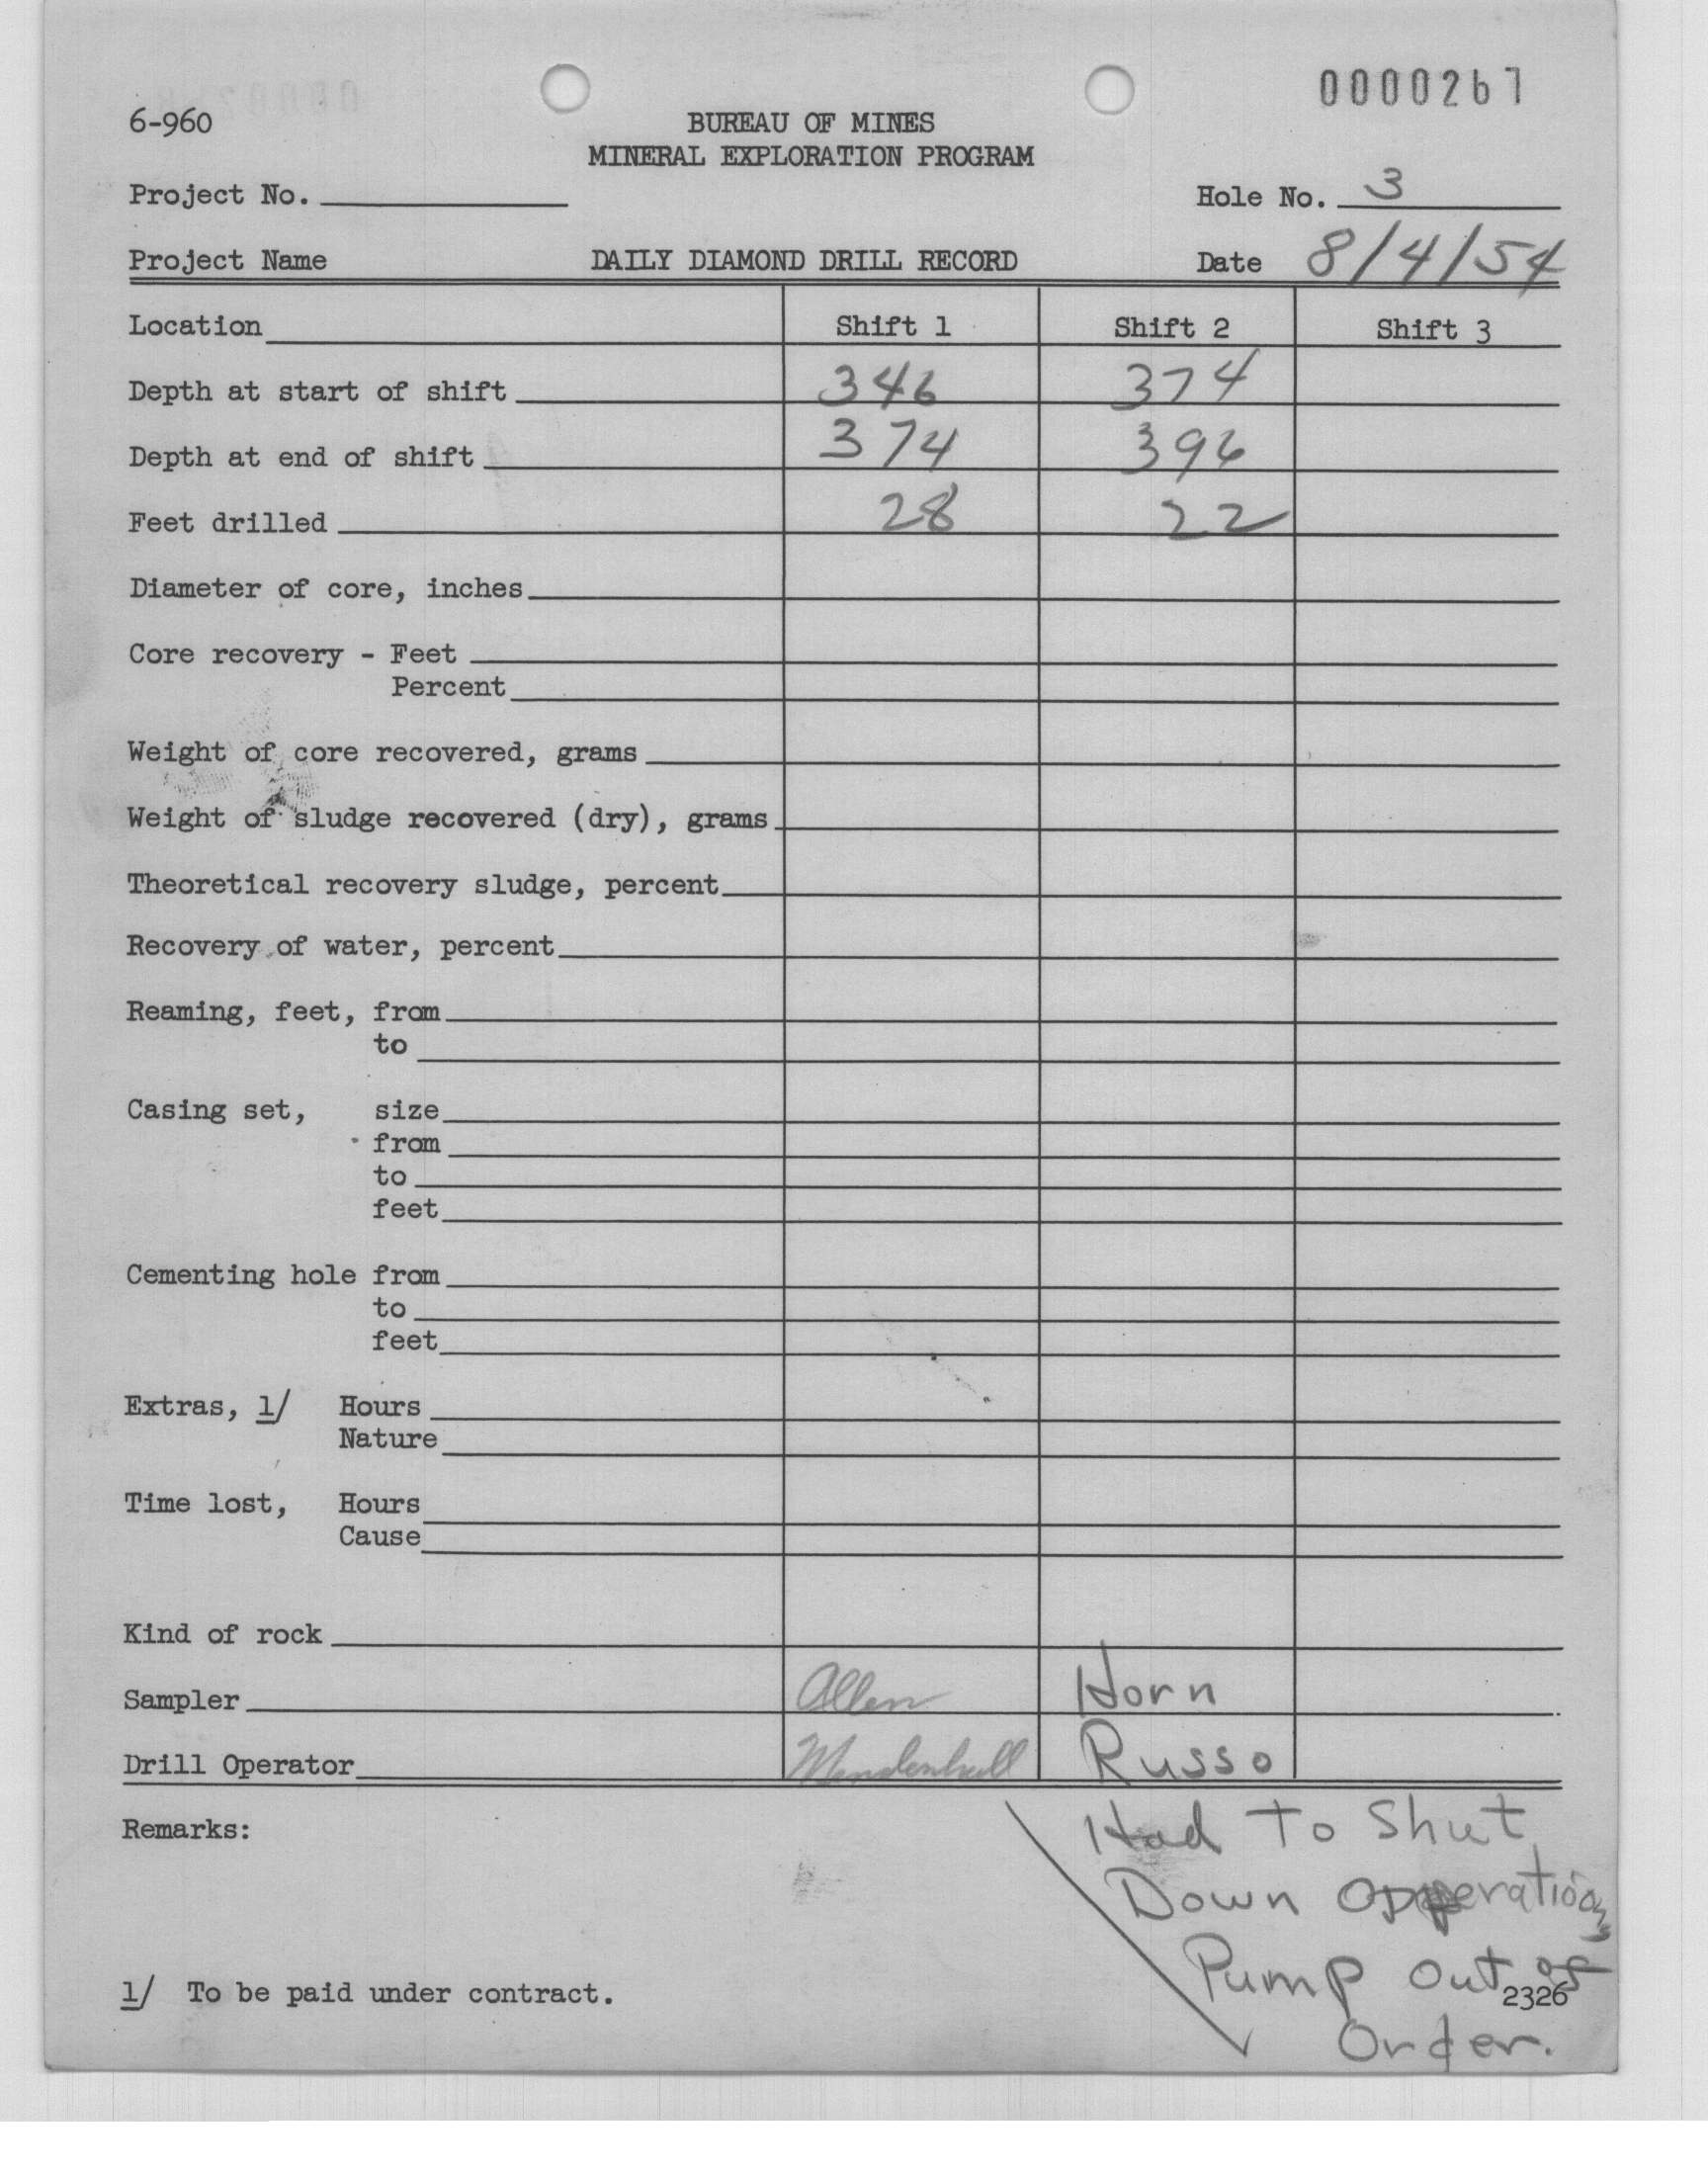 0000267
6-960
BUREAU OF MINES
MINERAL EXPLORATION PROGRAM
Project No. Hole No. 3
Project Name DAILY DIAMOND DRILL RECORD Date 8/4/54
Location Shift 1 Shift 2 Shift 3
Depth at start of shift 346 374
Depth at end of shift 374 396
Feet drilled 28 22
Diameter of core, inches
Core recovery - Feet
Percent
Weight of core recovered, grams
Weight of sludge recovered (dry), grams
Theoretical recovery sludge, percent
Recovery of water, percent
Reaming, feet, from
to
Casing set, size
from
to
feet
Cementing hole from
to
feet
Extras, 1/ Hours
Nature
Time lost, Hours
Cause
Kind of rock
Sampler Allen Horn
Drill Operator Mendenhall Russo
Remarks: Had To Shut
Down Opperation,
Pump Out of
1/ To be paid under contract. 2326
Order.